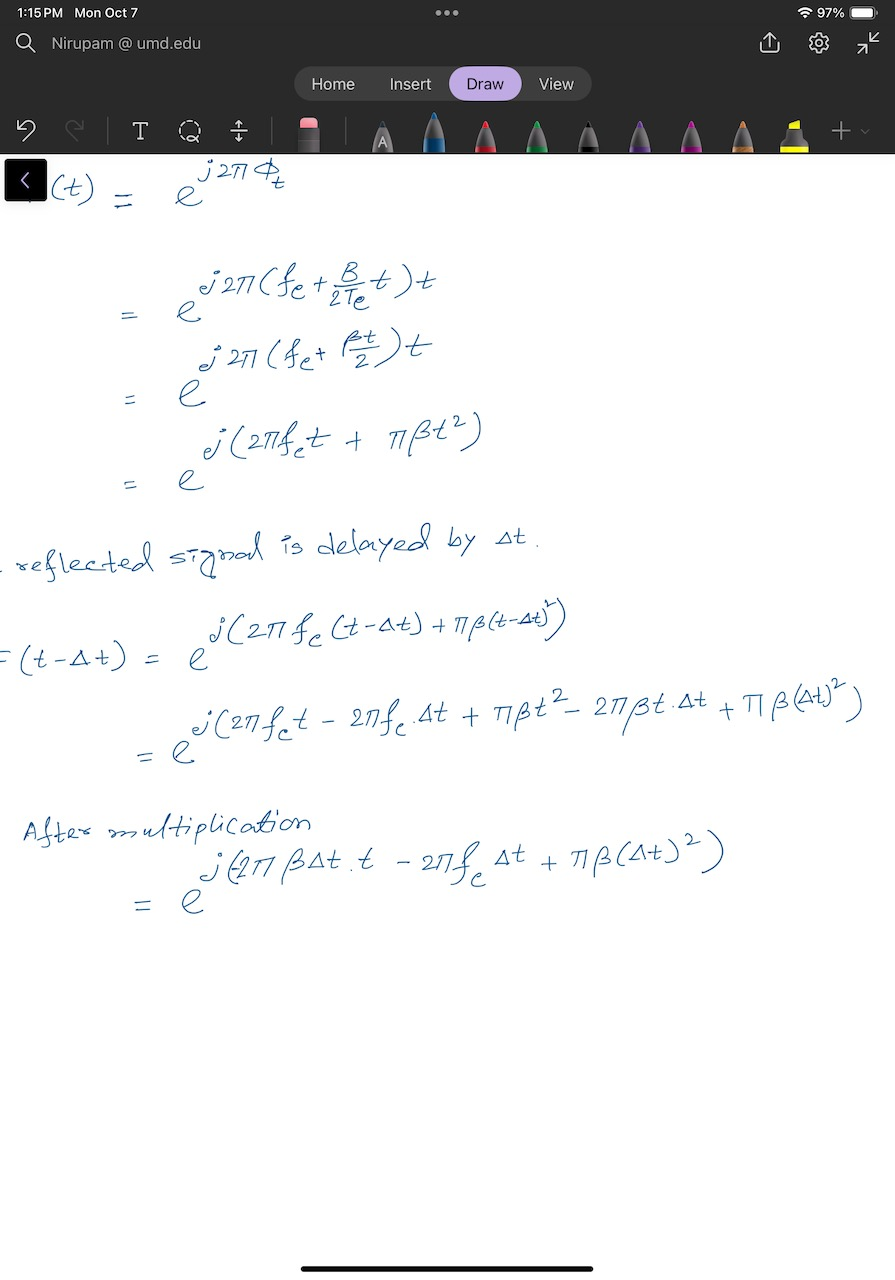 1:15 PM Mon Oct 7 97%
Nirupam @ umd.edu
Home Insert Draw View
T A
(t) = e^{j2π Φ_t}
= e^{j2π(f_c + \frac{B}{2T_c} t)t}
= e^{j2π(f_c + \frac{βt}{2})t}
= e^{j(2πf_c t + πβt²)}
reflected signal is delayed by Δt.
(t-Δt) = e^{j(2πf_c(t-Δt) + πβ(t-Δt)²)}
= e^{j(2πf_c t - 2πf_c.Δt + πβt² - 2πβt.Δt + πβ(Δt)²)}
After multiplication
= e^{j(-2πβΔt.t - 2πf_c Δt + πβ(Δt)²)}